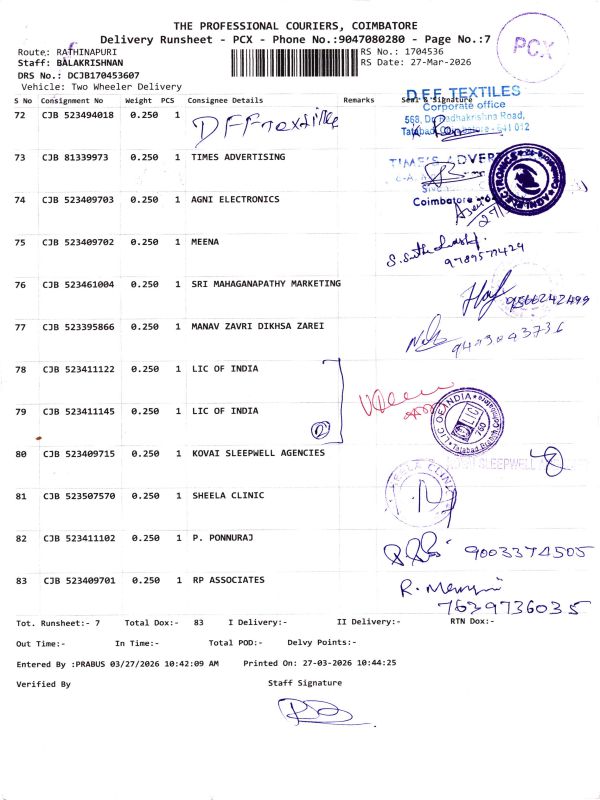 THE PROFESSIONAL COURIERS, COIMBATORE
Delivery Runsheet - PCX - Phone No.:9047080280 - Page No.:7
PCX
Route: RATHINAPURI
RS No.: 1704536
Staff: BALAKRISHNAN
RS Date: 27-Mar-2026
DRS No.: DCJB170453607
Vehicle: Two Wheeler Delivery
S No Consignment No Weight PCS Consignee Details Remarks Seal & Signature
72 CJB 523494018 0.250 1 DFF Textiles
D.F.F. TEXTILES
Corporate office
568, Dr. Radhakrishna Road,
Tatabad, Coimbatore - 641 012
73 CJB 81339973 0.250 1 TIMES ADVERTISING
TIME'S ADVER
Coimbatore
74 CJB 523409703 0.250 1 AGNI ELECTRONICS
AGNI ELECTRONICS
75 CJB 523409702 0.250 1 MEENA
9789577424
76 CJB 523461004 0.250 1 SRI MAHAGANAPATHY MARKETING
9566242499
77 CJB 523395866 0.250 1 MANAV ZAVRI DIKHSA ZAREI
9403043736
78 CJB 523411122 0.250 1 LIC OF INDIA
79 CJB 523411145 0.250 1 LIC OF INDIA
2
LIC OF INDIA
LIC
760
Tatabad Branch
80 CJB 523409715 0.250 1 KOVAI SLEEPWELL AGENCIES
SLEEPWELL
81 CJB 523507570 0.250 1 SHEELA CLINIC
SHEELA CLINIC
82 CJB 523411102 0.250 1 P. PONNURAJ
9003374505
83 CJB 523409701 0.250 1 RP ASSOCIATES
7639736035
Tot. Runsheet:- 7 Total Dox:- 83 I Delivery:- II Delivery:- RTN Dox:-
Out Time:- In Time:- Total POD:- Delvy Points:-
Entered By :PRABUS 03/27/2026 10:42:09 AM Printed On: 27-03-2026 10:44:25
Verified By Staff Signature